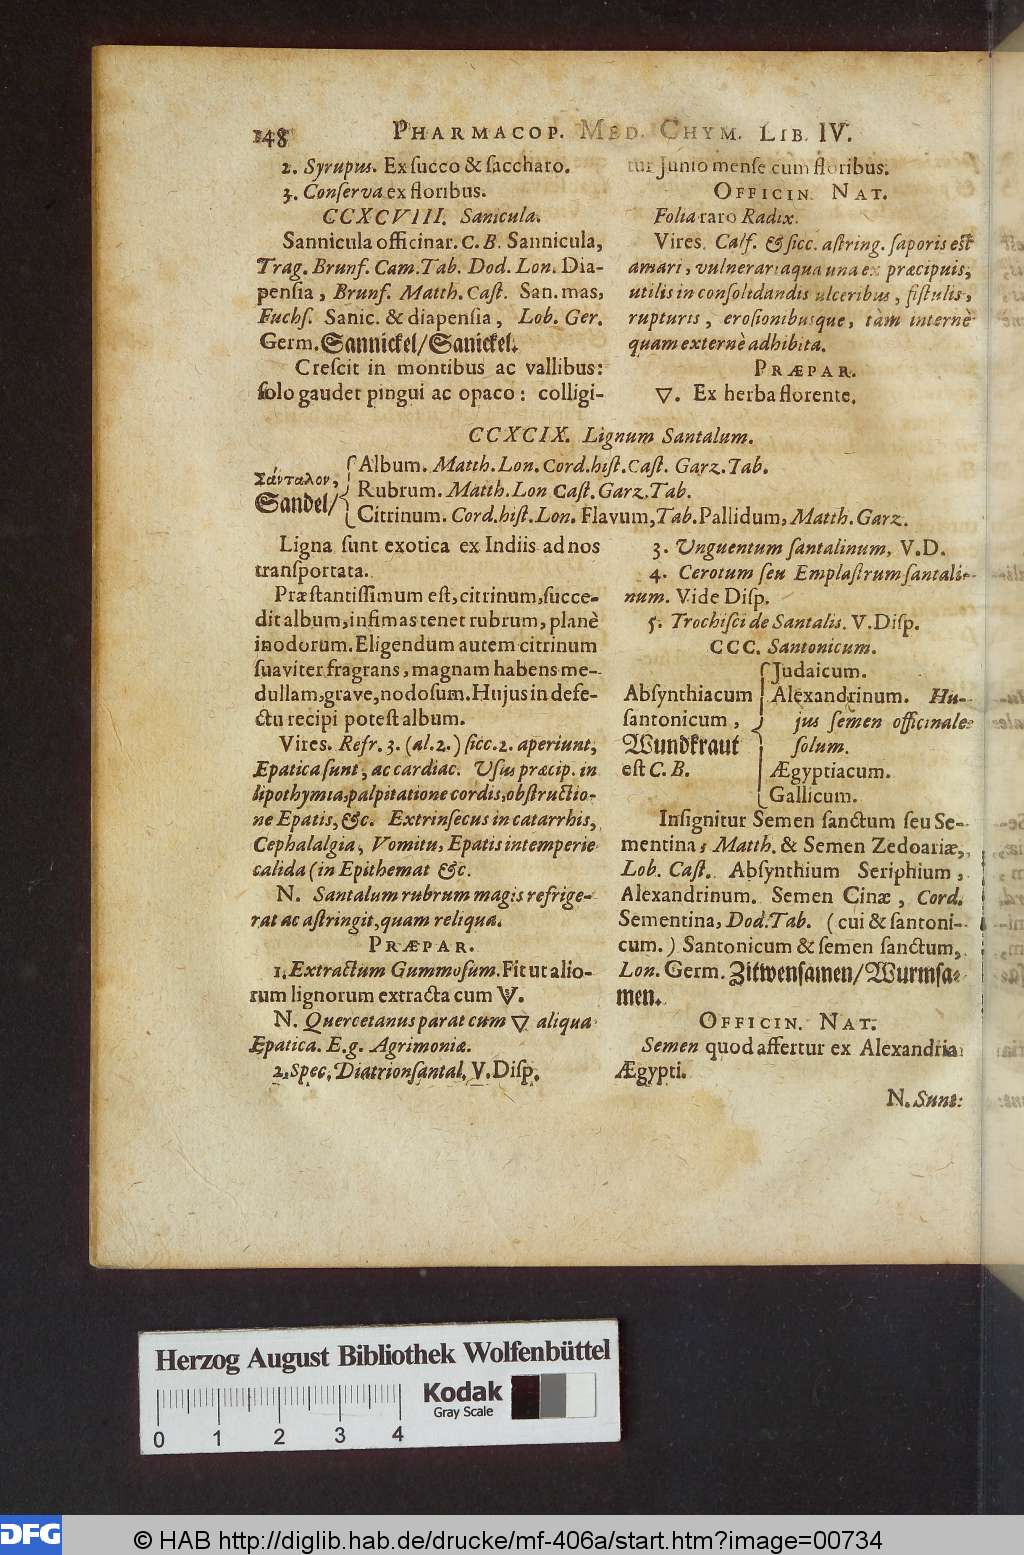 148 PHARMACOP. MED. CHYM. LIB. IV.
2. Syrupus. Ex succo & saccharo.
3. Conserva ex floribus.
CCXCVIII. Sanicula.
Sannicula officinar. C. B. Sannicula,
Trag. Brunf. Cam. Tab. Dod. Lon. Dia-
pensia, Brunf. Matth. Cast. San. mas,
Fuchs. Sanic. & diapensia, Lob. Ger.
Germ. Sannickel/Sanickel.
Crescit in montibus ac vallibus:
solo gaudet pingui ac opaco: colligi-
tur Junio mense cum floribus.
OFFICIN. NAT.
Folia raro Radix.
Vires. Calf. & sicc. astring. saporis est
amari, vulneraria aqua una ex præcipuis,
utilis in consolidandis ulceribus, fistulis,
rupturis, erosionibusque, tàm internè
quam externè adhibita.
PRÆPAR.
▽. Ex herba florente.
CCXCIX. Lignum Santalum.
Σάνταλον,
Sandel/
Album. Matth. Lon. Cord. hist. Cast. Garz. Tab.
Rubrum. Matth. Lon Cast. Garz. Tab.
Citrinum. Cord. hist. Lon. Flavum, Tab. Pallidum, Matth. Garz.
Ligna sunt exotica ex Indiis ad nos
transportata.
Præstantissimum est, citrinum, succe-
dit album, infimas tenet rubrum, planè
inodorum. Eligendum autem citrinum
suaviter fragrans, magnam habens me-
dullam, grave, nodosum. Hujus in defe-
ctu recipi potest album.
Vires. Refr. 3. (al. 2.) sicc. 2. aperiunt,
Epatica sunt, ac cardiac. Usus præcip. in
lipothymia, palpitatione cordis, obstructio-
ne Epatis, &c. Extrinsecus in catarrhis,
Cephalalgia, Vomitu, Epatis intemperie
calida (in Epithemat &c.
N. Santalum rubrum magis refrige-
rat ac astringit, quam reliqua.
PRÆPAR.
1. Extractum Gummosum. Fit ut alio-
rum lignorum extracta cum V.
N. Quercetanus parat cum ▽ aliqua
Epatica. E. g. Agrimoniæ.
2. Spec. Diatrionsantal. V. Disp.
3. Unguentum santalinum, V. D.
4. Cerotum seu Emplastrum santali-
num. Vide Disp.
5. Trochisci de Santalis. V. Disp.
CCC. Santonicum.
Absynthiacum
santonicum,
Wundkraut
est C. B.
Judaicum.
Alexandrinum. Hu-
jus semen officinale
solum.
Ægyptiacum.
Gallicum.
Insignitur Semen sanctum seu Se-
mentina, Matth. & Semen Zedoariæ,
Lob. Cast. Absynthium Seriphium,
Alexandrinum. Semen Cinæ, Cord.
Sementina, Dod. Tab. (cui & santoni-
cum.) Santonicum & semen sanctum,
Lon. Germ. Zitwensamen/Wurmsa-
men.
OFFICIN. NAT.
Semen quod affertur ex Alexandria
Ægypti.
N. Sunt:
Herzog August Bibliothek Wolfenbüttel
Kodak
Gray Scale
0 1 2 3 4
DFG © HAB http://diglib.hab.de/drucke/mf-406a/start.htm?image=00734